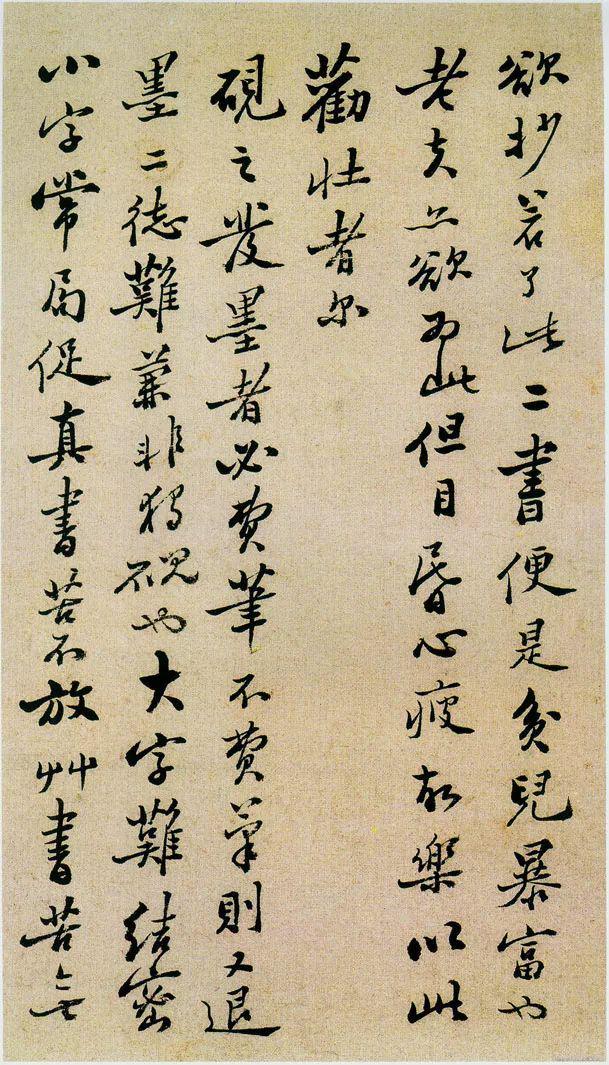 欲抄若了此二書便是貧兒暴富也
老夫亦欲為此但目昏心疲故樂以此
勸壯者爾
硯之發墨者必費筆不費筆則又退
墨二德難兼非獨硯也大字難結密
小字常局促真書苦不放草書苦無